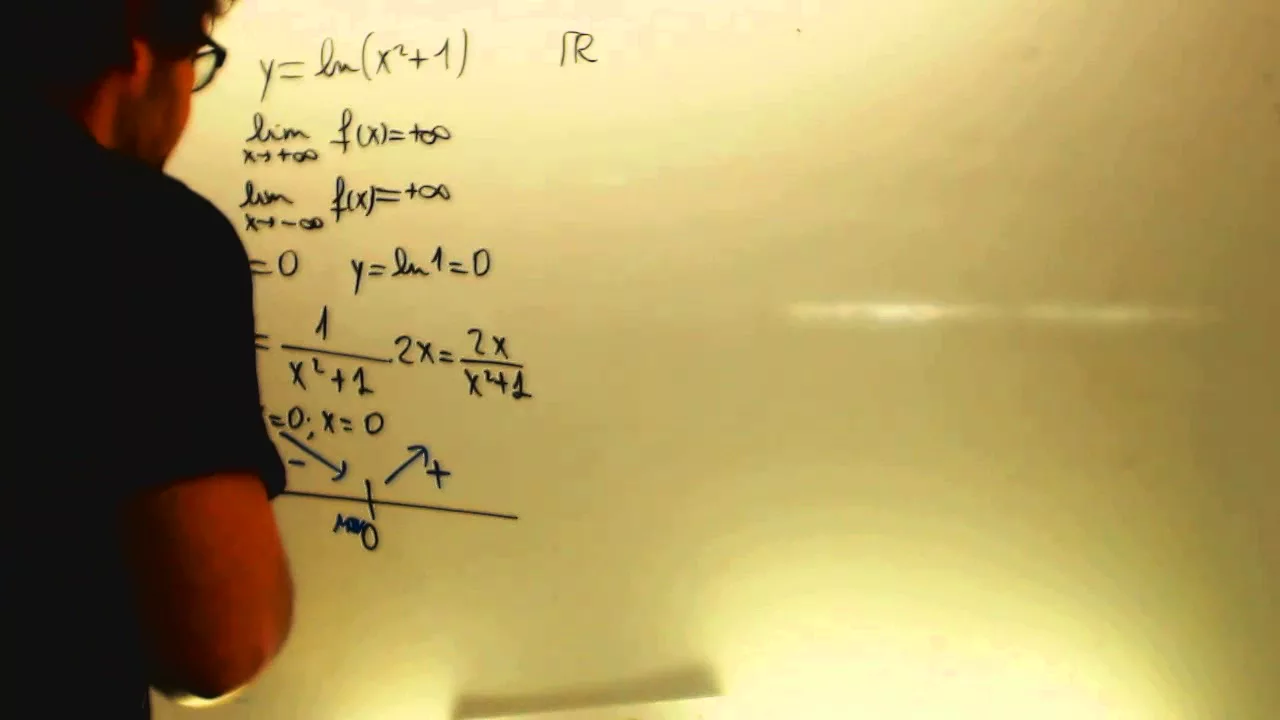 y = ln(x²+1) ℝ
lim x→+∞ f(x)=+∞
lim x→-∞ f(x)=+∞
=0 y=ln1=0
= 1/(x²+1) · 2x = 2x/(x²+1)
=0; x=0
- +
0